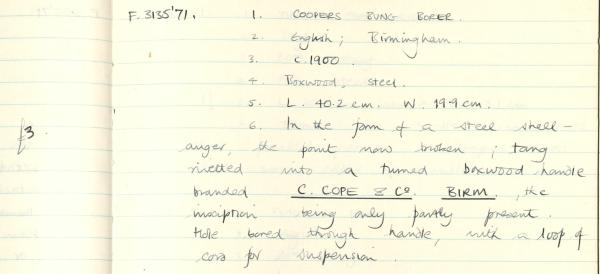 F.3135'71. 1. COOPERS BUNG BORER.
2. English; Birmingham.
3. C.1900.
4. Boxwood, steel.
5. L. 40.2 cm. W. 19.9 cm.
£3. 6. In the form of a steel shell-
auger, the point now broken; tang
rivetted into a turned boxwood handle
branded C. COPE & Co. BIRM., the
inscription being only partly present.
Hole bored through handle, with a loop of
cord for suspension.